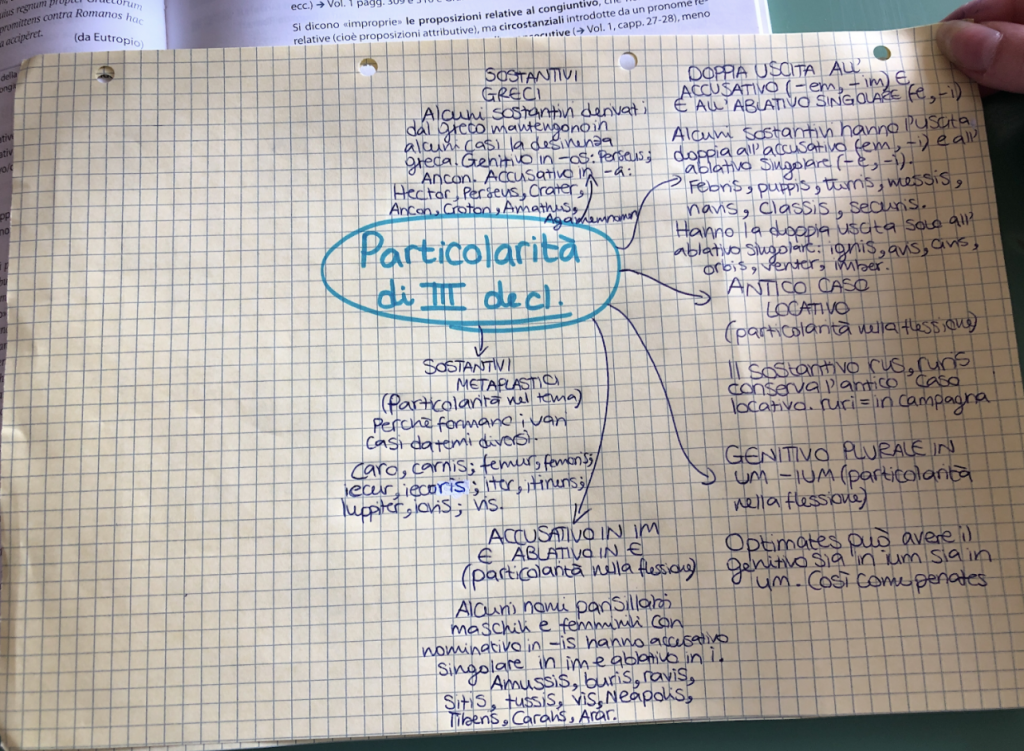 uius regnum propter Graecorum
promittens contra Romanos hac
a accipĕret.
(da Eutropio)
ecc.) → Vol. 1 pagg. 309 e 310
Si dicono «improprie» le proposizioni relative al congiuntivo, che
relative (cioè proposizioni attributive), ma circostanziali introdotte da un pronome re-
(→ Vol. 1, capp. 27-28), meno
SOSTANTIVI
GRECI
Alcuni sostantivi derivati
dal greco mantengono in
alcuni casi la desinenza
greca. Genitivo in -os: Perseus;
Ancon. Accusativo in -a:
Hector, Perseus, Crater,
Ancon, Croton, Amathus,
Agamemnon
DOPPIA USCITA ALL'
ACCUSATIVO (-em, -im) E
E ALL'ABLATIVO SINGOLARE (-e, -i)
Alcuni sostantivi hanno l'uscita
doppia all'accusativo (em, -i) e all'
ablativo singolare (-e, -i).
Febris, puppis, turris, messis,
navis, classis, securis.
Hanno la doppia uscita solo all'
ablativo singolare: ignis, avis, civis,
orbis, venter, imber.
Particolarità
di III decl.
ANTICO CASO
LOCATIVO
(particolarità nella flessione)
Il sostantivo rus, ruris
conserva l'antico caso
locativo. ruri = in campagna
SOSTANTIVI
METAPLASTICI
(Particolarità nel tema)
Perchè formano i vari
casi da temi diversi.
Caro, carnis; femur, femoris;
iecur, iecoris; iter, itineris;
Iuppiter, Iovis; vis.
GENITIVO PLURALE IN
UM -IUM (particolarità
nella flessione)
Optimates può avere il
genitivo sia in ium sia in
um. Così come penates
ACCUSATIVO IN IM
E ABLATIVO IN E
(particolarità nella flessione)
Alcuni nomi parisillabi
maschili e femminili con
nominativo in -is hanno accusativo
singolare in im e ablativo in i.
Amussis, buris, ravis,
Sitis, tussis, vis, Neapolis,
Tiberis, Araris, Arar.